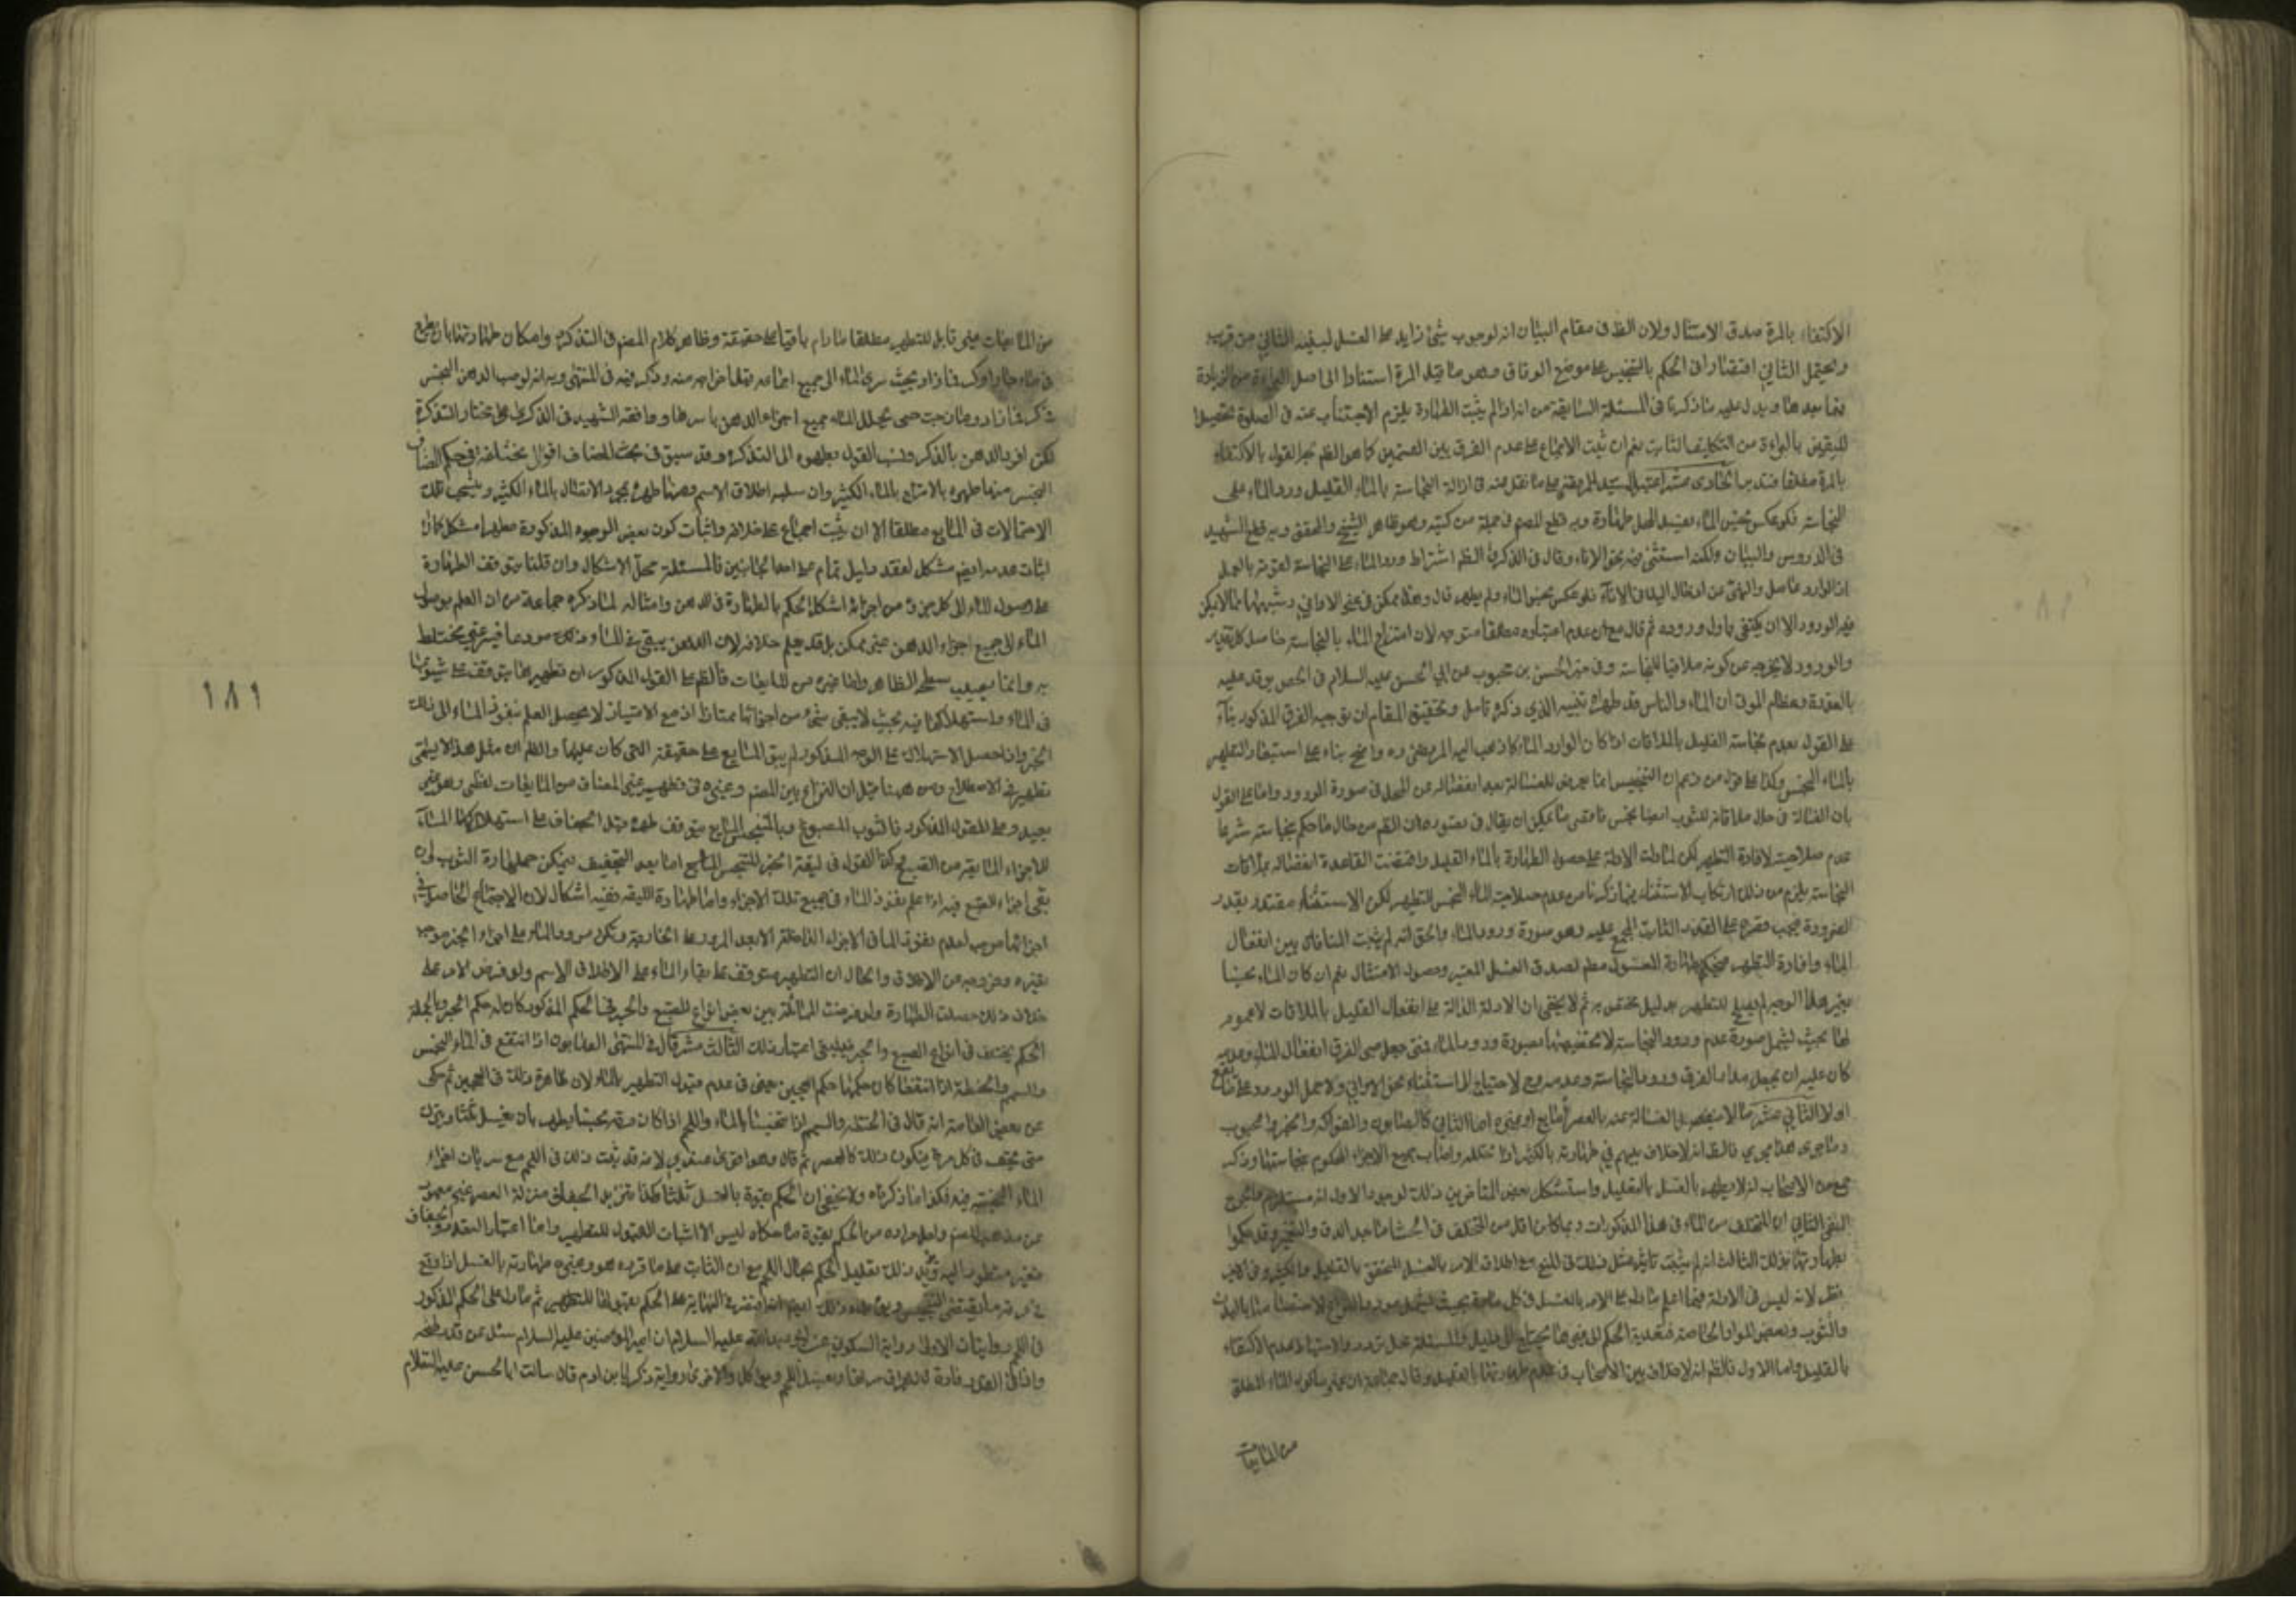 الاكتفاء بالمرة صدق الامتثال ولان الظ فى مقام البيان انه لو وجب شئ زايد على الغسل لبينه الثانى من قريب
ويحتمل الثانى اقتصارا فى الحكم بالتنجيس على موضع الوفاق وهو ما قبل المرة استنادا الى اصل البراءة من الزيادة
فما بعدها ويدل عليه ما ذكرنا فى المسئلة السابقة من انه اذا لم يثبت الطهارة يلزم الاجتناب عنه فى الصلوة تحصيلا
لليقين بالبراءة من التكليف الثابت نعم ان ثبت الاجماع على عدم الفرق بين القسمين كما هو الظم تجه القول بالاكتفاء
بالمرة مطلقا الحادى عشر اعتبر السيد المرتضى على ما نقل عنه فى ازالة النجاسة بالماء القليل ورود الماء على
النجاسة فلو عكس نجس الماء ولم يفد المحل طهارة وبه قطع المصم فى جملة من كتبه وهو ظاهر الشيخ والمحقق وبه قطع الشهيد
فى الدروس والبيان ولكنه استثنى منه نحو الاناء وقال فى الذكرى الظم اشتراط ورود الماء على النجاسة لقوته بالعمل
اذ الوارد عامل وللنهى عن ادخال اليد فى الاناء فلو عكس نجس الماء ولم يطهر قال وهذا ممكن فى غير الاوانى وشبهها مما لا يمكن
فيه الورود الا ان يكتفى باول وروده ثم قال مع ان عدم اعتباره مطلقا متوجه لان امتزاج الماء بالنجاسة حاصل على كل تقدير
والورود لا يخرجه عن كونه ملاقيا للنجاسة وفى خبر الحسن بن محبوب عن ابى الحسن عليه السلام فى الجص يوقد عليه
بالعذرة وعظام الموتى ان الماء والنار قد طهراه تنبيه الذى ذكره تامل وتحقيق المقام ان توجيه الفرق المذكور بناء
على القول بعدم نجاسة القليل بالملاقات اذا كان الوارد الماء كما ذهب اليه المرتضى ره واضح بناء على استبعاد التطهير
بالماء النجس وكذا على قول من زعم ان التنجيس انما يعرض للغسالة بعد انفصاله عن المحل فى صورة الورود واما على القول
بان الغسالة فى حال ملاقاته للثوب ايضا نجس فاقصى ما يمكن ان يقال فى تصويره ان الظم من حال ما حكم بنجاسته شرعا
عدم صلاحيته لافادة التطهير لكن لما دلت الادلة على حصول الطهارة بالماء القليل واقتضت القاعدة انفعاله بملاقات
النجاسة يلزم من ذلك ارتكاب الاستثناء فيما ذكرنا من عدم صلاحية الماء النجس للتطهير لكن الاستثناء مقتدر بقدر
الضرورة فيجب قصره على القدر الثابت المجمع عليه وهو صورة ورود الماء والحق انه لم يثبت المنافاة بين انفعال
الماء وافادة التطهير فيحكم بطهارة المغسول مطم لصدق الغسل المعتبر وحصول الامتثال نعم ان كان الماء نجسا
بغير هذا الوجه لم يصلح للتطهير بدليل مختص به ثم لا يخفى ان الادلة الدالة على انفعال القليل بالملاقات لا عموم
لها بحيث ليشمل صورة عدم ورود النجاسة لاختصاصها بصورة ورود الماء فمتى جعل صى الفرق انفعال الماء وعدمه
كان عليه ان يجعل مدار الفرق ورود النجاسة وعدمه وح لا حتياج الى استثناء نحو الاوانى ولا حمل الورود على ما يقع
اولا الثانى عشر ما لا ينفصل الغسالة عنه بالعصر مايع او غيره اما الثانى كالصابون والفواكه والخبز والحبوب
وما جرى هذا مجرى فالظ انه لا خلاف بينهم فى طهارته بالكثير اذا تخلله واصاب جميع الاجزاء المحكوم بنجاستها وذكر
جمع من الاصحاب انه لا يطهر بالغسل بالقليل واستشكل بعض المتاخرين ذلك لوجوه الاول انه مستلزم للحرج
النفى الثانى ان المتخلف من الماء فى هذه المذكورات ربما كان اقل من المتخلف فى الحشايا بعد الدق والتغميز وقد حكموا
بطهارتها بذلك الثالث انه لم يثبت تاثير مثل ذلك فى المنع مع اطلاق الامر بالغسل المتحقق بالقليل والكثير وفى الاخير
نظر لانه ليس فى الادلة فيما اعلم ما دل على الامر بالغسل فى كل مادة بحيث ليشمل مورد النزاع لاختصاصها بالبدن
والثوب وبعض المواد الخاصة فتعدية الحكم الى غيرها يحتاج الى دليل والمسئلة محل تردد والاستظهار عدم الاكتفاء
بالقليل واما الاول فالظ انه لا خلاف بين الاصحاب فى عدم طهارتها بالقليل وقال جماعة ان غير ماكون الماء المطلق
من المايعات
من المايعات غير قابل للتطهير مطلقا مادام باقيا على حقيقة وظاهر كلام المصم فى التذكرة وامكان طهارتها بان يطرح
فى ماء جار او كر فما زاد بحيث سرى الماء الى جميع اجزائه قبل اخراجه منه وذكر فيه فى المنتهى وبه انه لو صب الدهن النجس
فى كر فما زاد وما زجت حتى تخلل الماء جميع اجزاء الدهن باسرها ووافقه الشهيد فى الذكرى على مختار التذكرة
لكن افرد الدهن بالذكر ونسب القول بطهره الى التذكرة وقد سبق فى بحث المضاف اقوال مختلفة فى حكم المضاف
النجس منها طهره بالامتزاج بالماء الكثير وان سلبه اطلاق الاسم ومنها طهره بمجرد الاتصال بالماء الكثير وينسحب تلك
الاحتمالات فى المايع مطلقا الا ان يثبت اجماع على خلافه واثبات كون بعض الوجوه المذكورة مطهرا مشكل كما ان
اثبات عدمه ايضم مشكل لفقد دليل تمام على احد الجانبين فالمسئلة محل الاشكال وان قلنا بتوقف الطهارة
على وصول الماء الى كل جزء من اجزائه اشكل الحكم بالطهارة فى الدهن وامثاله لما ذكره جماعة من ان العلم بوصول
الماء الى جميع اجزاء الدهن غير ممكن بل قد يعلم خلافه لان الدهن يبقى فى الماء وذلك مودعا فيه غير مختلط
به وانما يصيب سطحه الظاهر واما غيره من المايعات فالظم على القول المذكور ان تطهيرها يتوقف على شيوعها
فى الماء واستهلاكها فيه بحيث لا يبقى شئ من اجزائها ممتازا اذ مع الامتياز لا يحصل العلم بنفوذ الماء الى ذلك
الجزء واذا حصل الاستهلاك على الوجه المذكور لم يبق المايع على حقيقته التى كان عليها والظم ان مثل هذا لا يسمى
تطهيرا فى الاصطلاح ومن ههنا قيل ان النزاع بين المصم وغيره فى تطهير غير المضاف من المايعات لفظى وهو غير
بعيد وعلى القول المذكور فالثوب المصبوغ بالمتنجس المايع يتوقف طهره قبل الجفاف على استهلاك الماء
للاجزاء المائية من الصبغ وكذا القول فى ليقة الحبر المتنجس المايع اما بعد التجفيف فيمكن حمل طهارة الثوب لو
بقى اجزاء الصبغ فيه اذا علم نفوذ الماء فى جميع تلك الاجزاء واما طهارة الليقة ففيه اشكال لان الاجتماع الحاصل فى
اجزائها موجب لعدم نفوذ الماء فى الاجزاء الداخلة الا بعد المرور على الخارجة ولكن مرور الماء على اجزاء الحبر موجب
تغيره وخروجه عن الاطلاق والحال ان التطهير متوقف على بقاء الماء على الاطلاق الاسم ولو فرض الامر على
خلاف ذلك حصلت الطهارة ولو فرضت المماثلة بين بعض انواع الصبغ والحبر فى الحكم المذكور كان له حكم الحبر وبالجملة
الحكم يختلف فى انواع الصبغ والحبر فينبغى اعتبار ذلك الثالث عشر قال فى المنتهى الصابون اذا انتقع فى الماء النجس
والسمسم والحنطة اذا انتقعا كان حكمها حكم العجين يعنى فى عدم قبول التطهير بالماء لان ظاهره ذلك فى العجين ثم حكى
عن بعض العامة انه قال فى الحنطة والسمسم اذا تنجسا بالماء واللحم اذا كان مرقه نجسا يطهر بان يغسل ثلثا ويترك
حتى يجف فى كل مرة فيكون ذلك كالعصر ثم قال وهو اقوى عندى لانه قد ثبت ذلك فى اللحم مع سريان اجزاء
الماء النجسة فيه فكذا ما ذكرناه ولا يخفى ان الحكم بقوة بالغسل ثلثا وكذا تنزيل الجفاف منزلة العصر غير معهود
من مذهب المصم ولعل مراده من الحكم بقوة ما حكاه ليس الا اثبات القبول للتطهير واما اعتبار العدد والجفاف
فغير منظور اليه ويؤيد ذلك تعليل الحكم بحال اللحم مع ان الثابت على ما قرره هو وغيره طهارته بالغسل اذا وقع
فى مرقه ما يقتضى التنجيس ويؤيد ذلك ايضم انه اقتصر فى النهاية على الحكم بقبولها للتطهير ثم ما دل على الحكم المذكور
فى اللحم روايتان الاولى رواية السكونى عن ابى عبد الله عليه السلام ان امير المؤمنين عليه السلام سئل عن قدر طبخه
واذا فى القدر فارة قال يهراق مرقها ويغسل اللحم ويؤكل والاخرى رواية زكريا بن ادم قال سالت ابا الحسن عليه السلام
١٨١